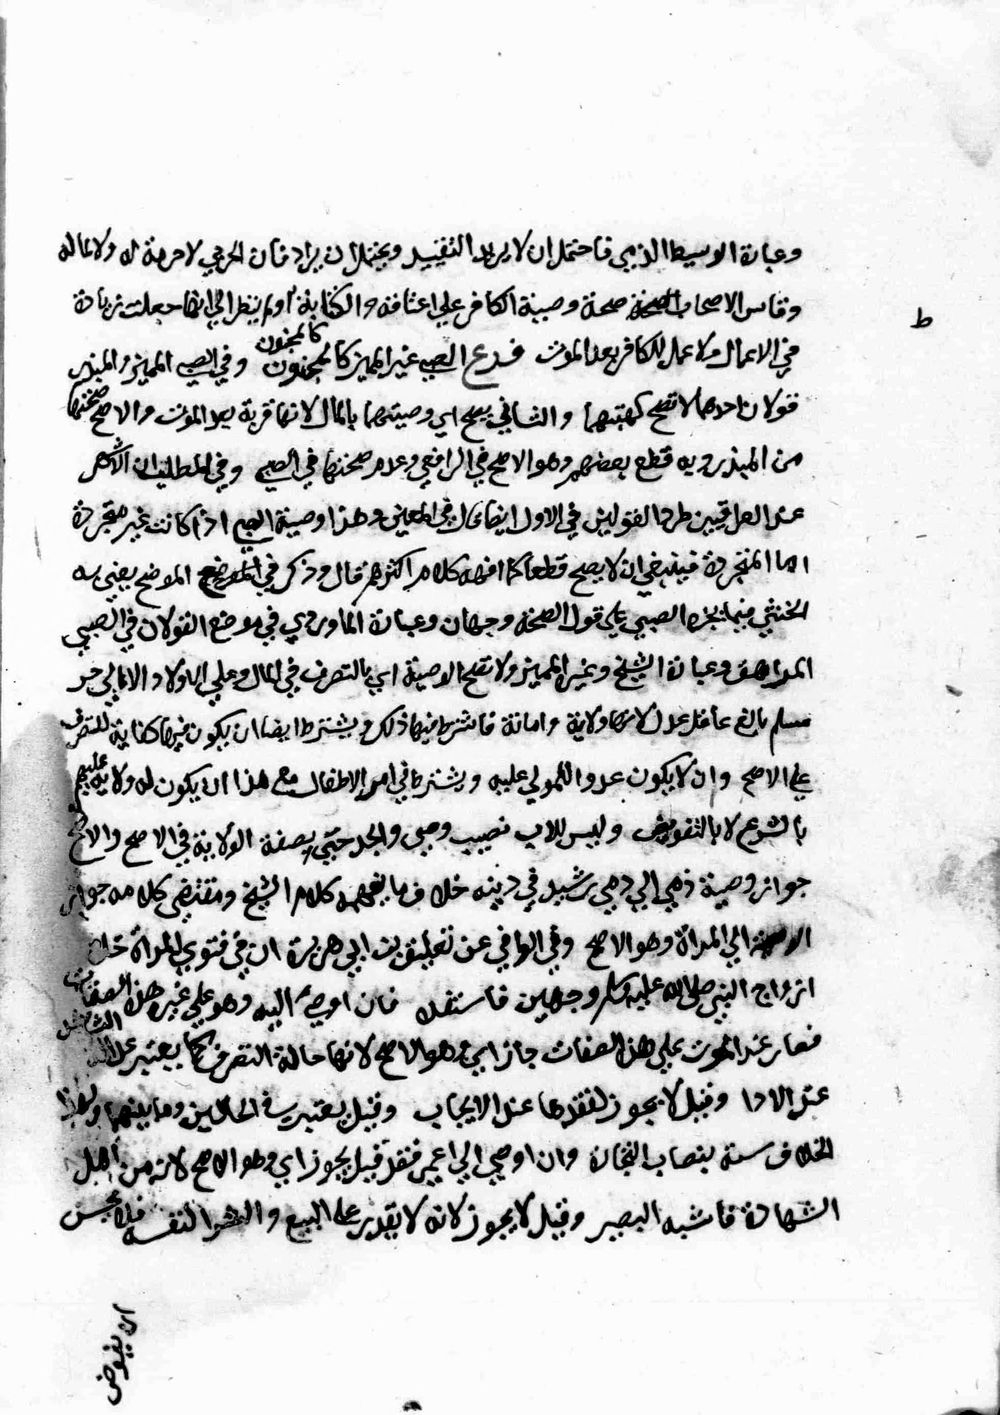 وعبارة الوسيط الذمي فاحتمل ان لا يريد التقييد ويحتمل ان يراد فان الحربي لا حرمة له ولا لماله
وقاس الاصحاب صحة وصية الكافر على اعتاقه والكتابة ولم ينظر الى انها جعلت زيادة
في الاعمال ولا عمل للكافر بعد الموت فرع الصبي غير المميز كالمجنون كالمجنون وفي الصبي المميز والمبذر
قولان احدهما لا تصح كهبتهما والثاني يصح اي وصيتهما بالمال لانها قربة بعد الموت والاصح صحتها
من المبذر وبه قطع بعضهم وهو الاصح في الرافعي وعدم صحتها في الصبي وفي المطلب ان الاشهر
عند العراقيين طرد القولين في الاول ايضا في المعين وهذا وصية الصبي اذا كانت غير منجزة
اما المنجزة فينبغي ان لا يصح قطعا كما افهمه كلام اكثرهم قال وذكر في الموضح يعني به
الخنثى فيما نجزه الصبي على قول الصحة وجهان وعبارة الماوردي في موضع القولان في الصبي
المراهق وعبارة الشيخ وغيره المميز ولا تصح الوصية اي بالتصرف في المال وعلى الاولاد الا الى حر
مسلم بالغ عاقل عدل لانها ولاية وامانة فاشترط فيها ذلك ويشترط ايضا ان يكون فيها كفاية للتصرف
على الاصح وان لا يكون عدوا للمولى عليه ويشترط في امر الاطفال مع هذا ان يكون له ولاية عليهم
بالشرع لا بالتفويض وليس للاب نصيب وصي والجد حي بصفة الولاية في الاصح والاصح
جواز وصية ذمي الى ذمي رشيد في دينه خلاف ما يفهمه كلام الشيخ ومقتضى كلامه جواز
الوصية الى المراة وهو الاصح وفي الوافي عن تعليق بن ابي هريرة ان في فتوى المراة خلا
ازواج النبي صلى الله عليه وسلم وجهين فاستفد فان اوصى اليه وهو على غير هذه الصفات
فصار عند الموت على هذه الصفات جاز اي وهو الاصح لانها حالة التصرف كما يعتبر عدالة الشاهد
عند الادا وقيل لا يجوز لفقدها عند الايجاب وقيل يعتبر في الحالين وما بينهما ولهذا
الخلاف بنصاب التجارة وان اوصى الى اعمى فقد قيل يجوز اي وهو الاصح لانه من اهل
الشهادة فاشبه البصير وقيل لا يجوز لانه لا يقدر على البيع والشرا لنفسه فلا يحسن
ان يفوض
ط